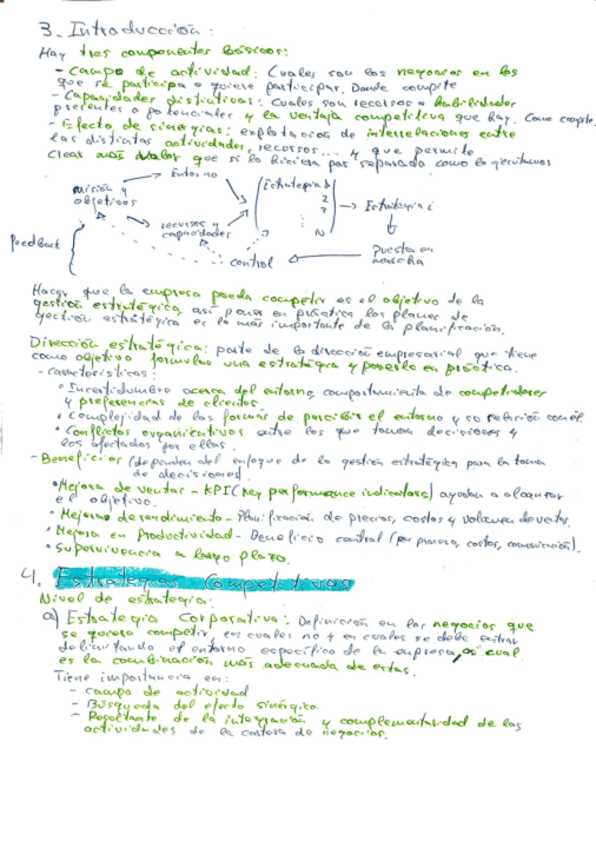 3. Introducción:
Hay tres componentes básicos:
- Campo de actividad: Cuales son los negocios en los
que se participa o quiere participar. Donde compite
- Capacidades distintivas: Cuales son recursos o habilidades
presentes o potenciales y la ventaja competitiva que hay. Como compite
- Efecto de sinergias: explotación de interrelaciones entre
las distintas actividades, recursos... y que permite
crear más valor que si lo hiciera por separado como lo
Entorno
misión y
objetivos
recursos y
capacidades
Estrategia 1
2
3
N
→ Estrategia i
Feedback
control
Puesta en
marcha
Hacer que la empresa pueda competir es el objetivo de la
gestión estratégica, así poner en práctica los planes de
gestión estratégica es lo más importante de la planificación.
Dirección estratégica: parte de la dirección empresarial que tiene
como objetivo formular una estrategia y ponerla en práctica.
- Características:
• Incertidumbre acerca del entorno, comportamiento de competidores
y preferencias de clientes.
• Complejidad de las formas de percibir el entorno y su relación con él.
• Conflictos organizativos entre los que toman decisiones y
los afectados por ellas.
- Beneficios (dependen del enfoque de la gestión estratégica para la toma
de decisiones)
• Mejora de ventas - KPI (key performance indicators) ayudan a alcanzar
el objetivo.
• Mejora de rendimiento - Planificación de precios, costos y volumen de ventas.
• Mejora en Productividad - Beneficio central (per proceso, costos, comunicación).
• Supervivencia a largo plazo.
4. Estrategias Competitivas
Nivel de estrategia:
a) Estrategia Corporativa: Definición en los negocios que
se quiere competir, en cuales no y en cuales se debe entrar
delimitando el entorno específico de la empresa, cual
es la combinación más adecuada de estas.
Tiene importancia en:
- campo de actividad
- Búsqueda del efecto sinérgico.
- Resultante de la integración y complementariedad de las
actividades de la cartera de negocios.